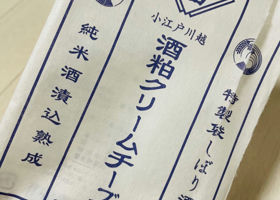 小江戸川越
特製袋しぼり酒
酒粕クリームチーズ
純米酒漬込熟成